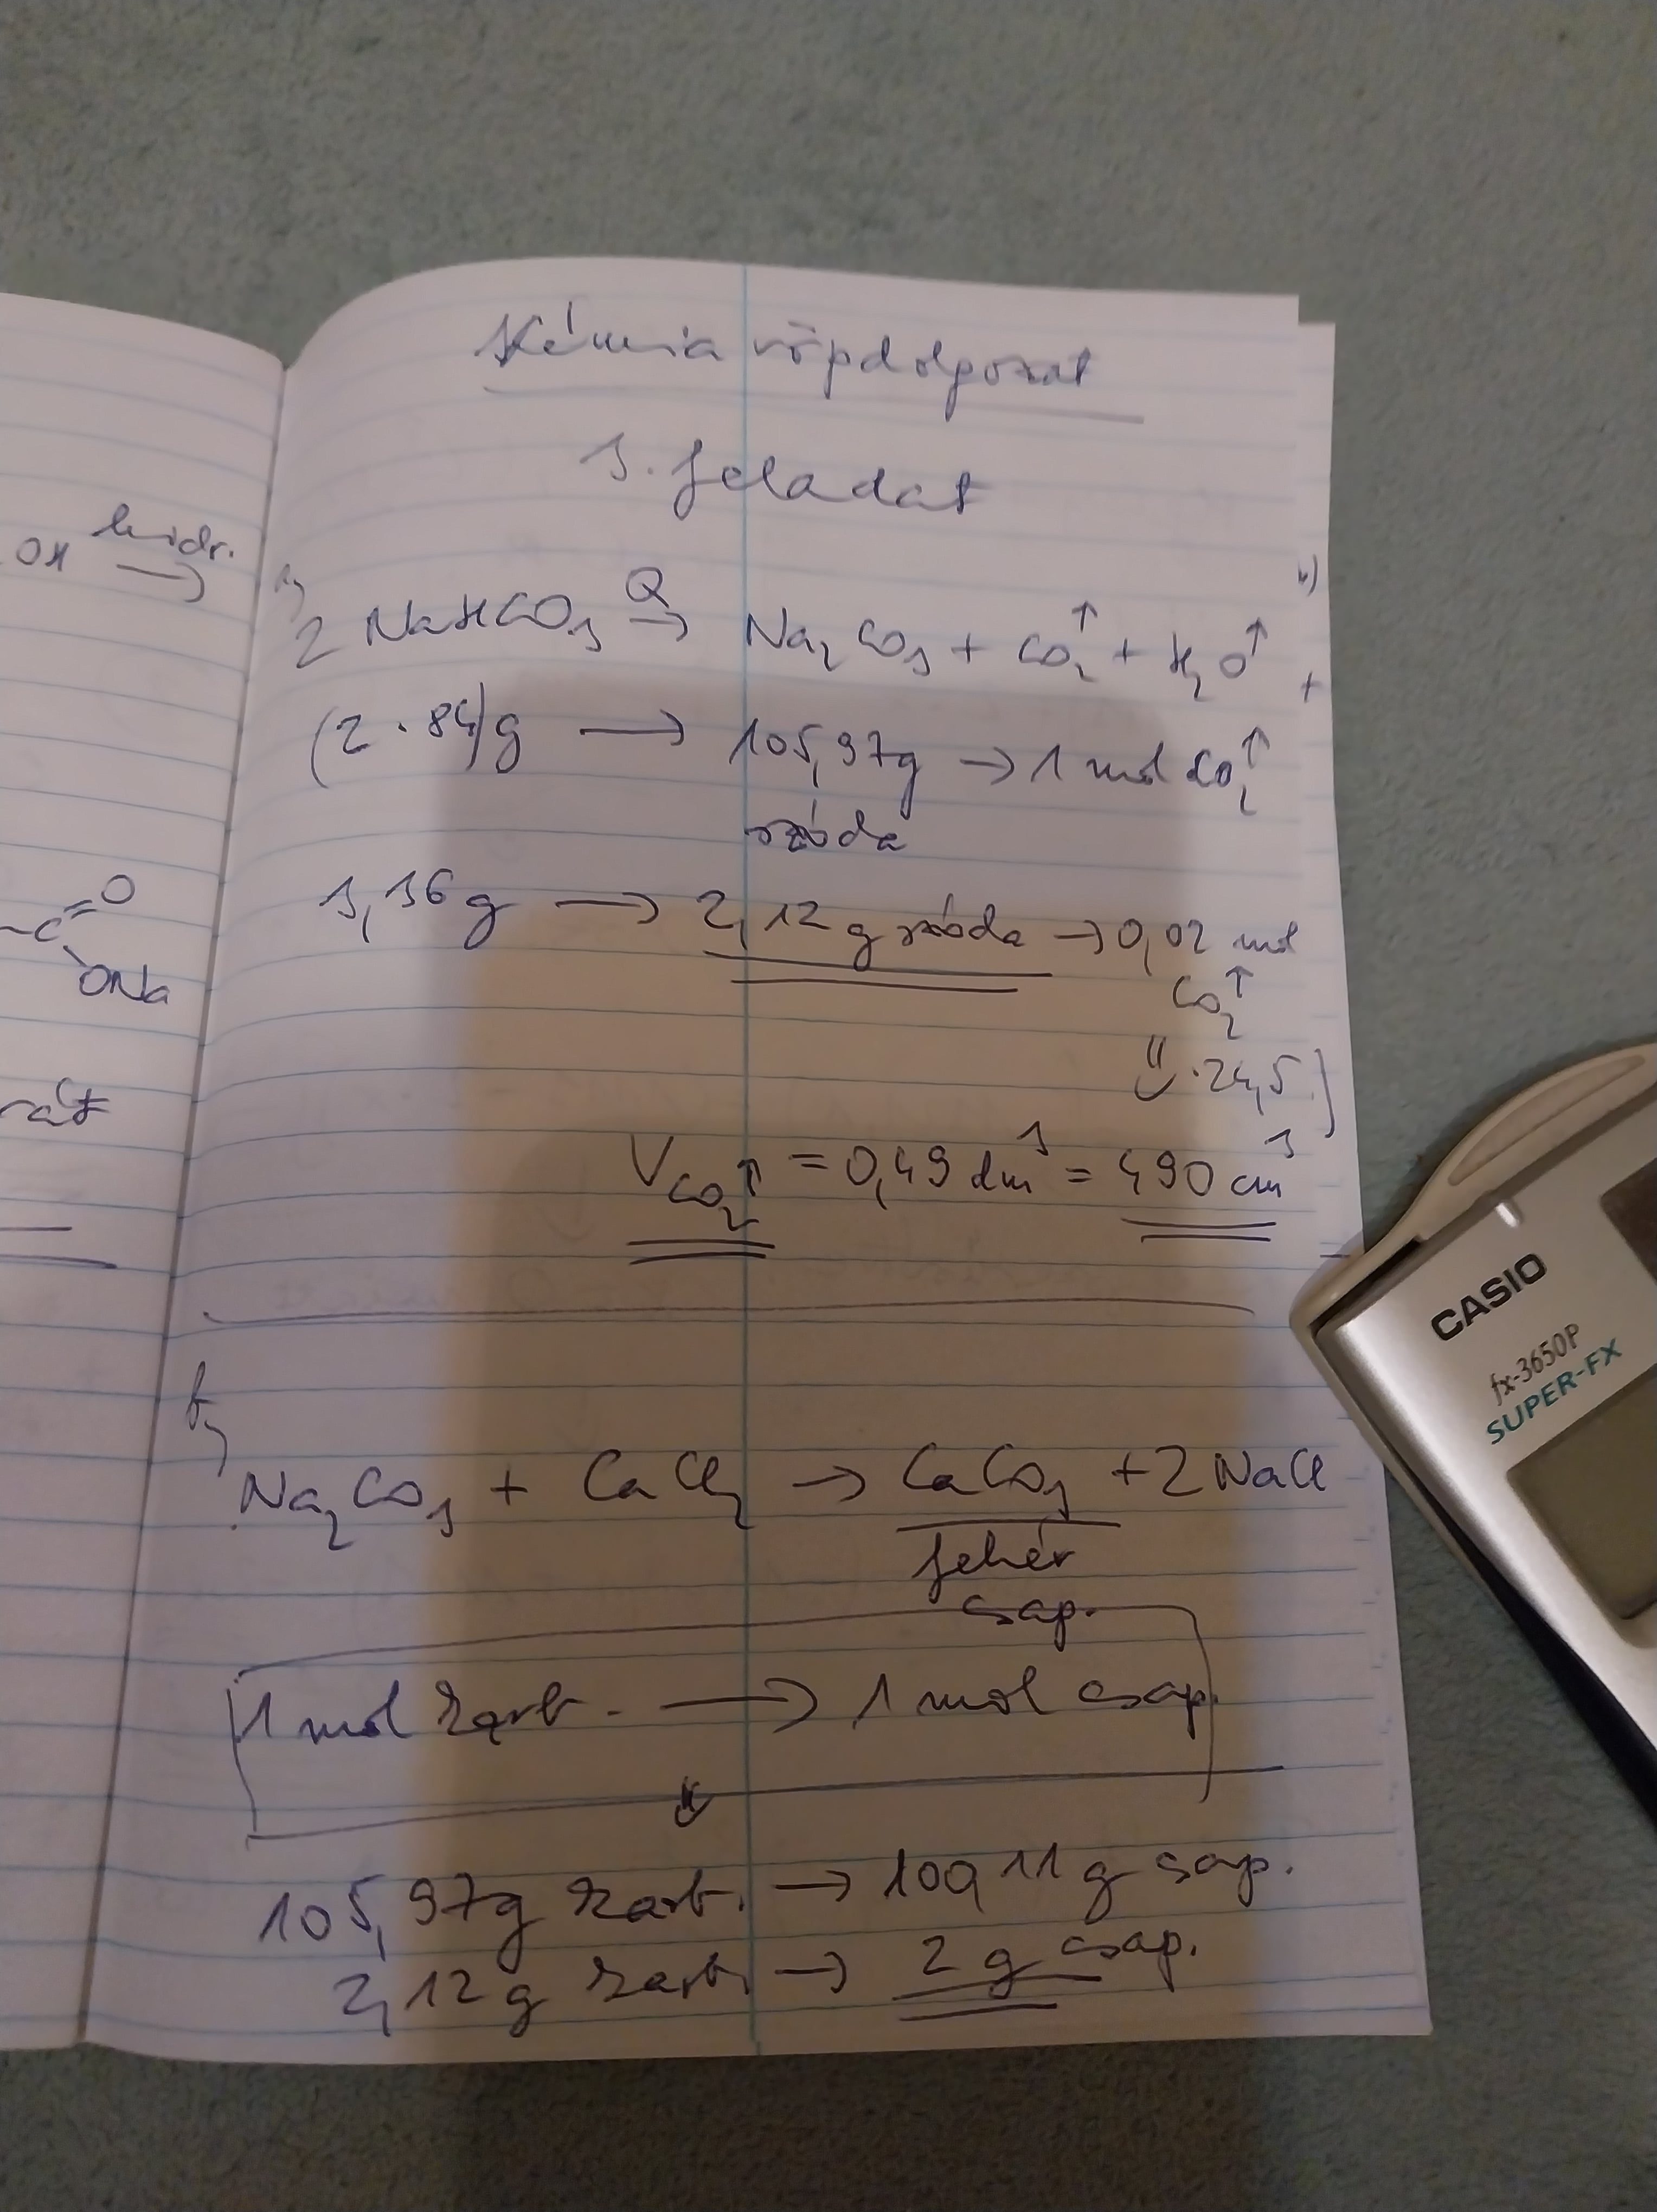 Kémia röpdolgozat
3. feladat
OH hidr. →
a,
2 NaHCO₃ Q→ Na₂CO₃ + CO₂↑ + H₂O↑
(2 · 84)g → 105,97g → 1 mol CO₂↑
szóda
3,36g → 2,12 g szóda → 0,02 mol
CO₂↑
⇓ · 24,5
V CO₂↑ = 0,49 dm³ = 490 cm³
C=O
ONa
b,
Na₂CO₃ + CaCl₂ → CaCO₃ + 2 NaCl
fehér
csap.
1 mol karb. → 1 mol csap.
⇓
105,97g karb. → 100,11 g csap.
2,12 g karb. → 2 g csap.
CASIO
fx-3650P
SUPER-FX